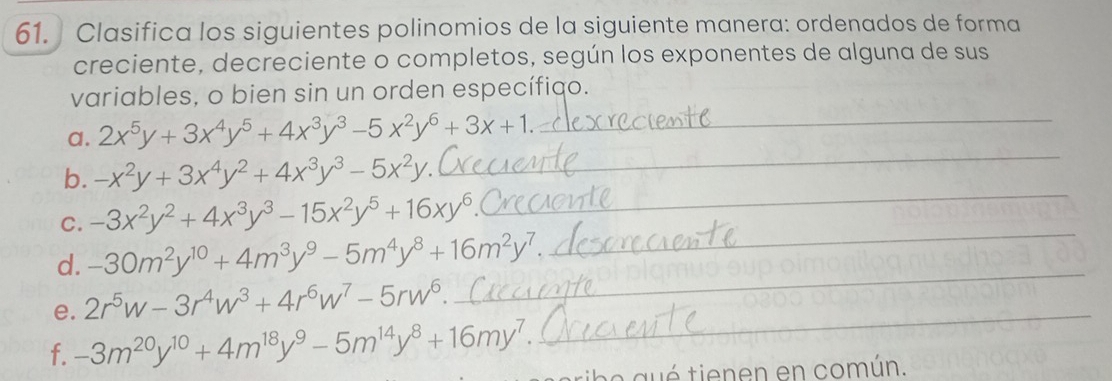 61. Clasifica los siguientes polinomios de la siguiente manera: ordenados de forma
creciente, decreciente o completos, según los exponentes de alguna de sus
variables, o bien sin un orden específico.
a. 2x⁵y + 3x⁴y⁵ + 4x³y³ – 5 x²y⁶ + 3x + 1. descreciente
b. –x²y + 3x⁴y² + 4x³y³ – 5x²y. Creciente
c. –3x²y² + 4x³y³ – 15x²y⁵ + 16xy⁶. Creciente
d. –30m²y¹⁰ + 4m³y⁹ – 5m⁴y⁸ + 16m²y⁷. descreciente
e. 2r⁵w – 3r⁴w³ + 4r⁶w⁷ – 5rw⁶. Creciente
f. –3m²⁰y¹⁰ + 4m¹⁸y⁹ – 5m¹⁴y⁸ + 16my⁷. Creciente
qué tienen en común.